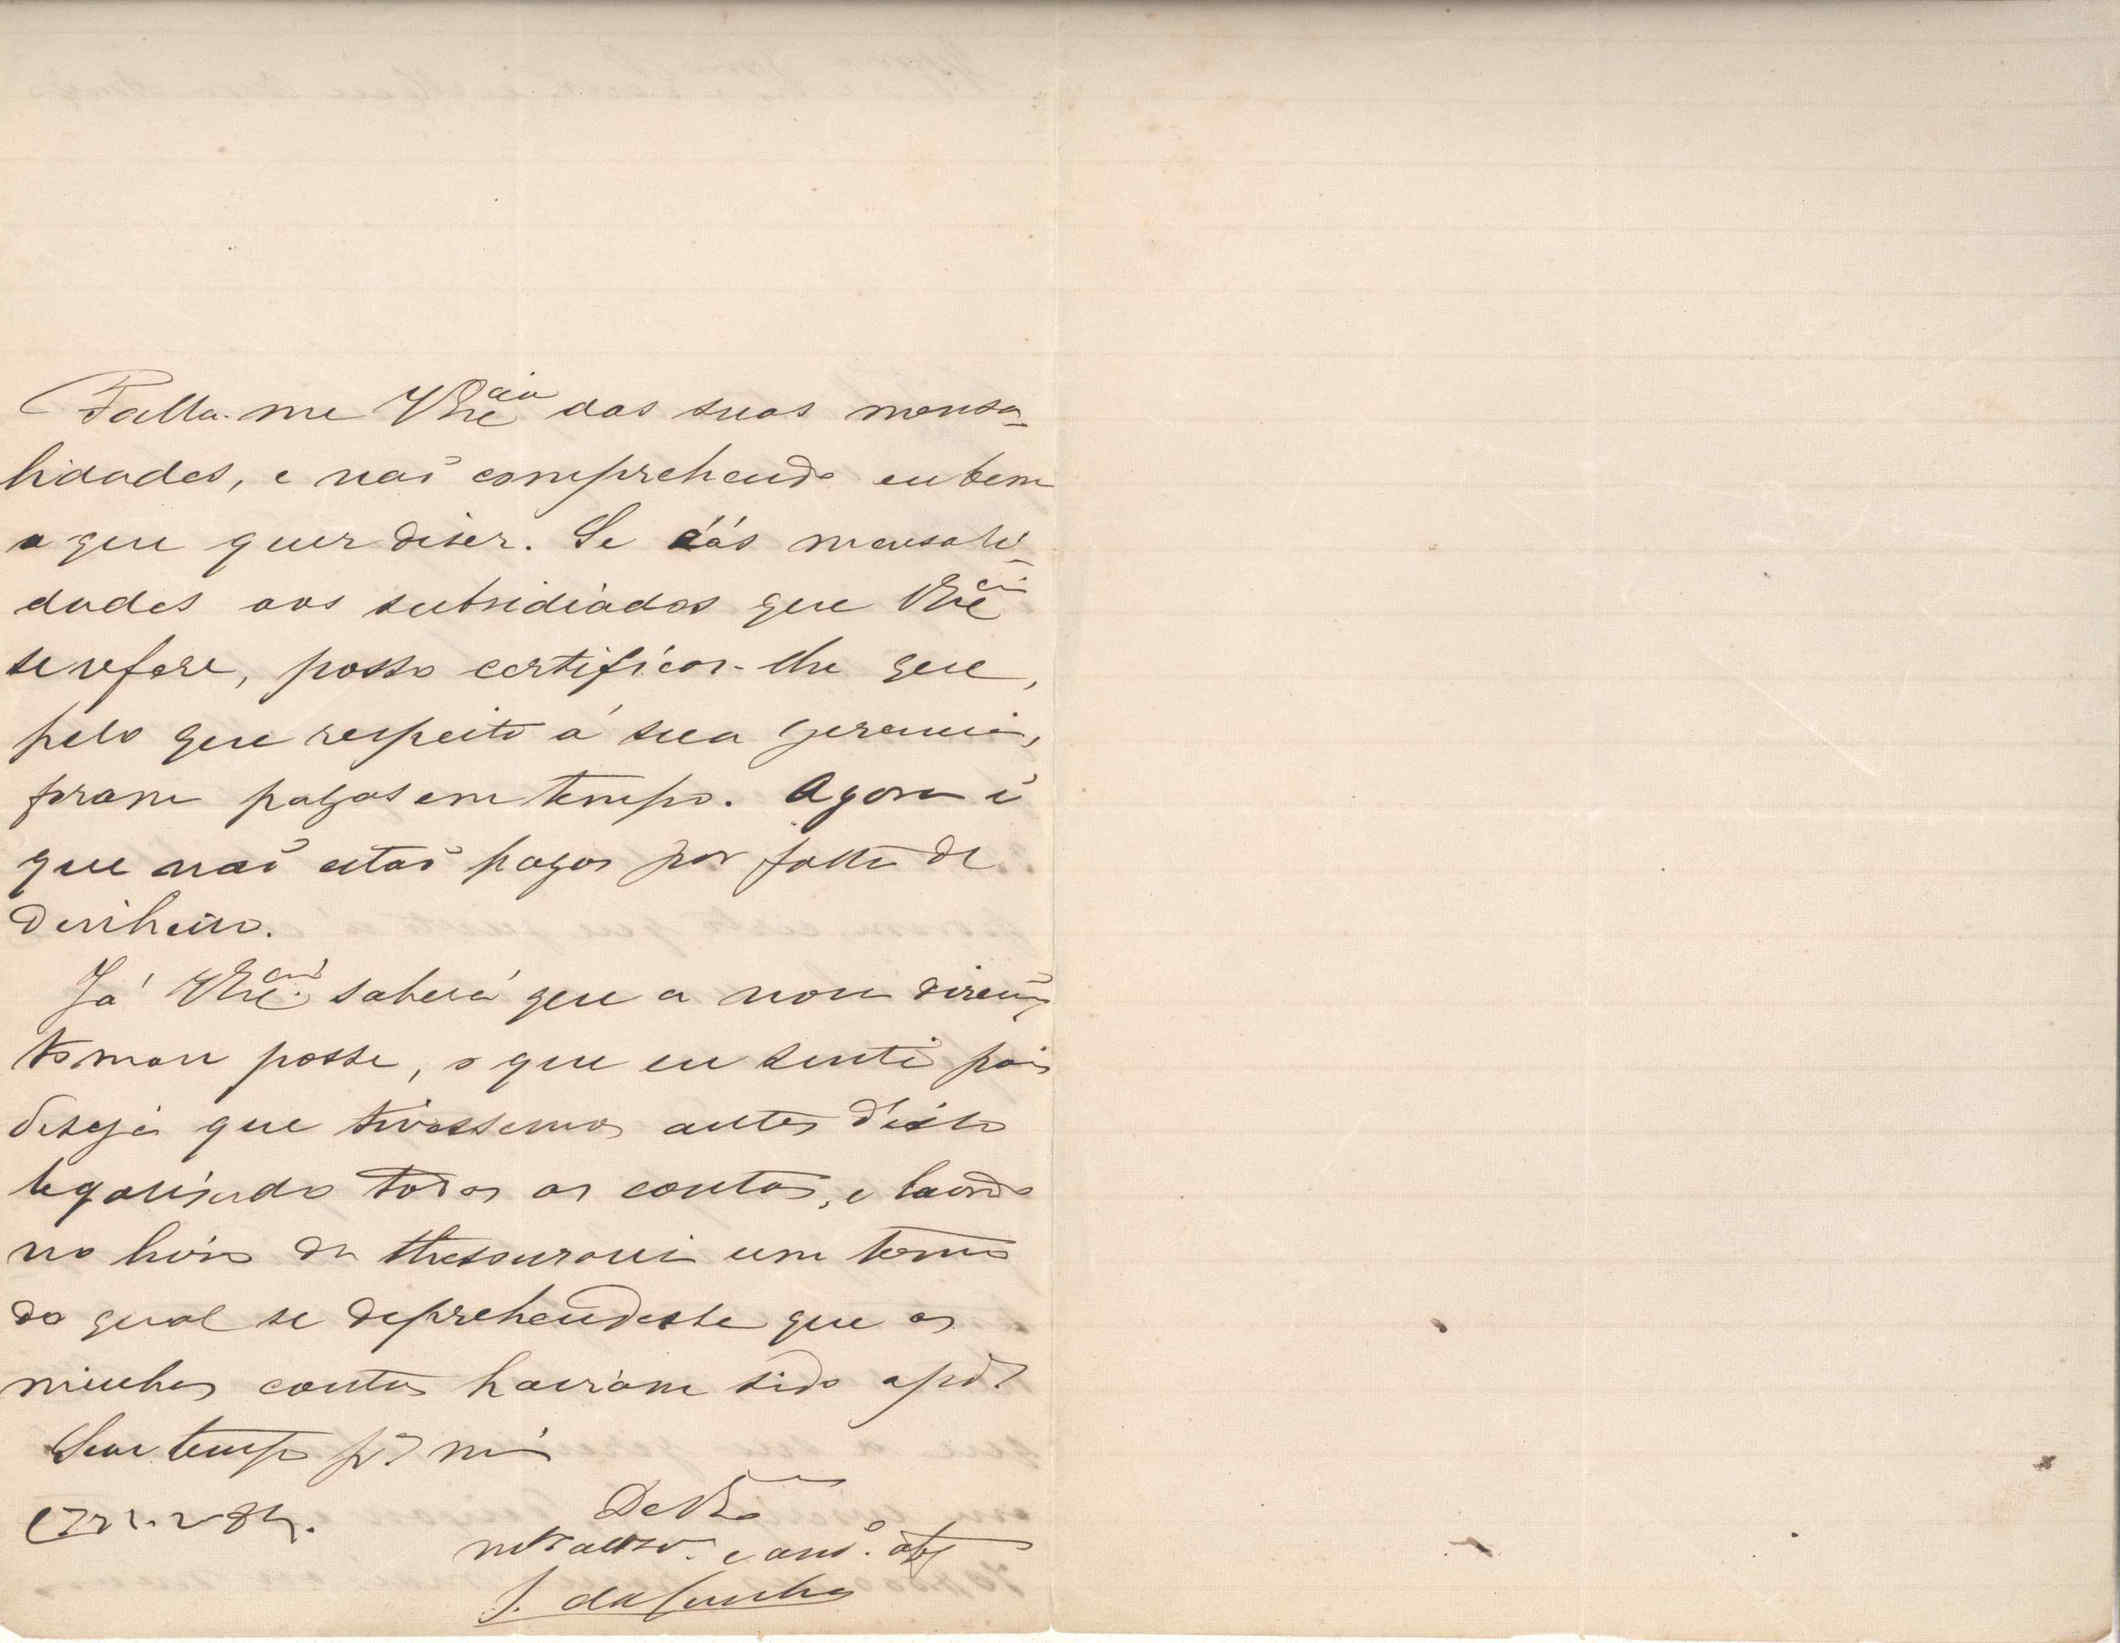 Falla-me VExcia das suas mensa-
lidades, e naõ comprehendo eu bem
o que quer diser. Se ás mensali-
dades aos subsidiados que VExcia
se refere, posso certificar-lhe que,
pelo que respeito á sua gerencia,
foram pagas em tempo. Agora é
que naõ estaõ pagos por falta de
dinheiro.
Já VExcia saberá que a nova direcçaõ
tomou posse, o que eu senti pois
deseja que tivessemos antes d'isto
legalisado todas as contas, e lavrado
no livro da thesouraria um termo
do qual se deprehendesse que as
minhas contas haviam sido appdas
Sem tempo pa mais
De VExa
mto atto vor. e amo. obg
J. da Cunha